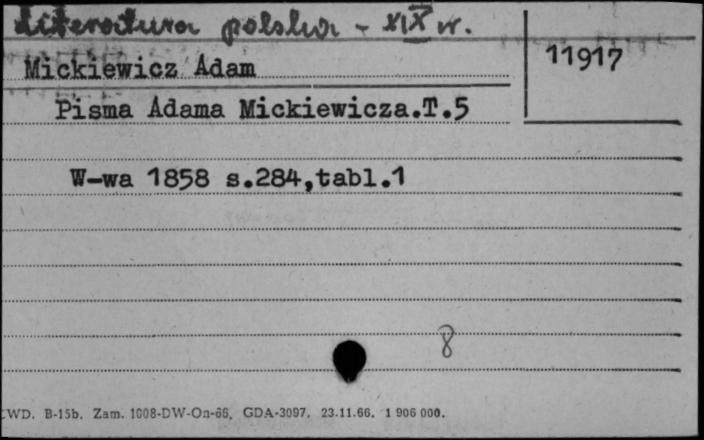 Literatura polska - XIX w.
11917
Mickiewicz Adam
Pisma Adama Mickiewicza.T.5
W-wa 1858 s.284,tabl.1
8
CWD. B-15b. Zam. 1008-DW-On-66. GDA-3097. 23.11.66. 1 906 000.